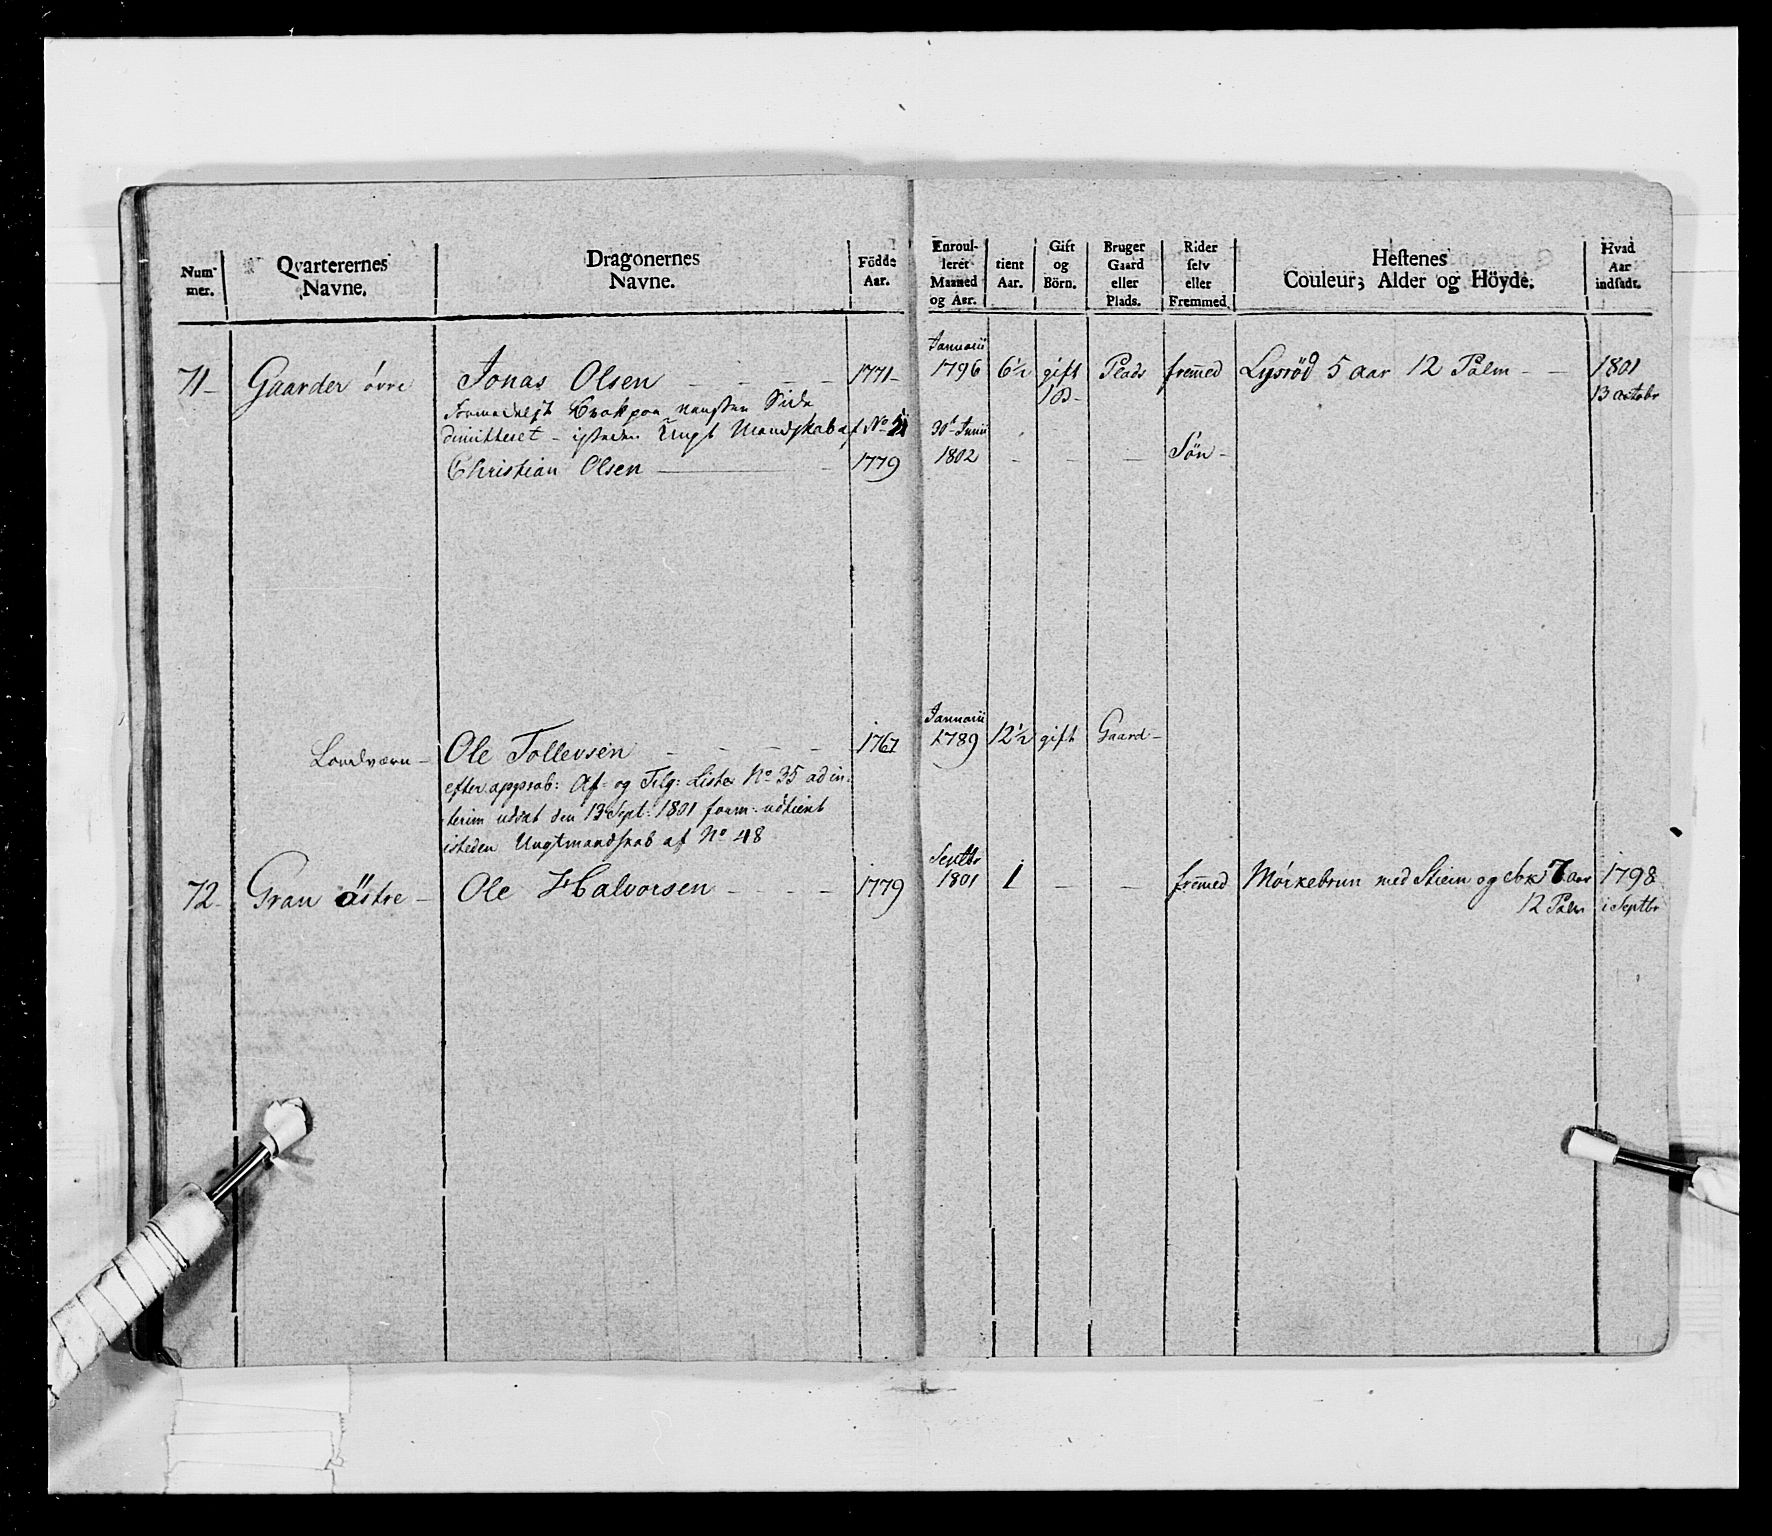 Num-
mer.
Qvarterernes
Navne.
Dragonernes
Navne.
Födde
Aar.
Enroul-
leret
Maaned
og Aar.
tient
Aar.
Gift
og
Börn.
Bruger
Gaard
eller
Plads.
Rider
selv
eller
Fremmed
Hestenes
Couleur, Alder og Höyde.
Hvad
Aar
indsadt.
Januarii
71 Gaarder övre Jonas Olsen 1771 1796 6½ gift Plads fremed Lysröd 5 aar 12 Palm 1801
1 B 13 octobr
Side
dimitteret isteden Ungt Mandskab af No 30t Junii
Christian Olsen 1779 1802 Sön
Januarii
Landværn Ole Tollevsen 1767 1789 12½ gift Gaard
efter approb: Af- og Tilg: Liste No 35 ad in-
terim udsat den 13 Sept: 1801 form. udtient
isteden Ungtmandskab af No 48
Septbr
72 Gran östre Ole Halvorsen 1779 1801 1 fremed Mörkebrun med Stiern og 7 aar 1798
12 Palm i Septbr